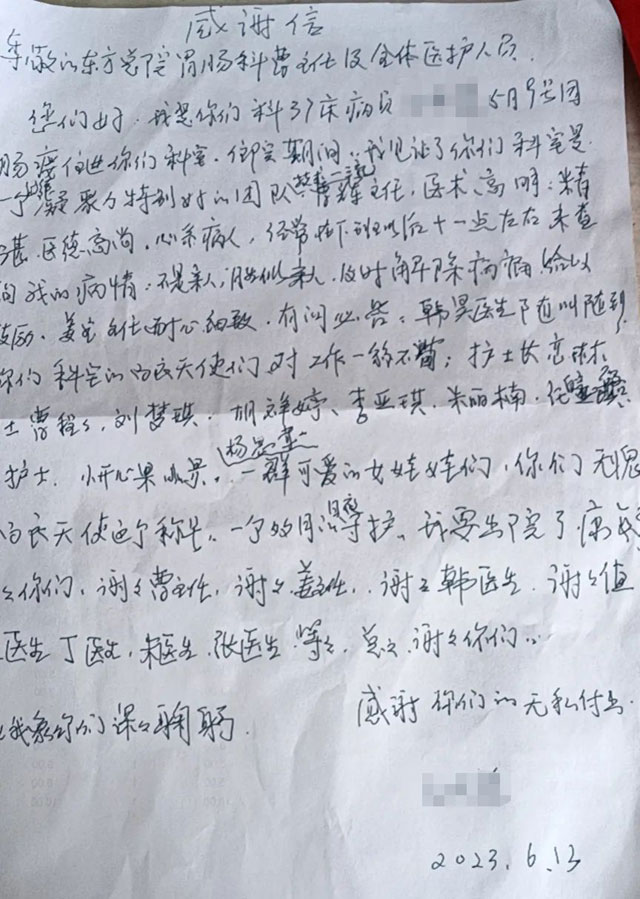 感谢信
尊敬的东方总院胃肠科曹主任及全体医护人员.
您们好.我是你们科37床病员 5月9号因
肠癌住进你们科室.住院期间.我见证了你们科室是
一个凝聚力特别好的团队 曹辉主任,医术高明:精
湛.医德高尚.心系病人,经常忙下班以后十一点左右来查
问我的病情.不是亲人,胜似亲人.及时解除病痛.给以
鼓励.姜主任耐心细致.有问必答.韩昊医生随叫随到
你们科室的白衣天使们对工作一丝不苟;护士长
士曹程程,刘梦琪.胡祥婷、李亚琪.朱丽楠.任
护士.小开心果 杨 一群可爱的女娃娃们,你们无愧
白衣天使这个称号.一个多月 守护、我要出院了
谢你们,谢谢曹主任,谢谢姜主任,谢谢韩医生.谢谢值
医生丁医生,宋医生.张医生.等等,总之.谢谢你们..
感谢你们的无私付出.
我给你们深深鞠躬.
2023.6.13